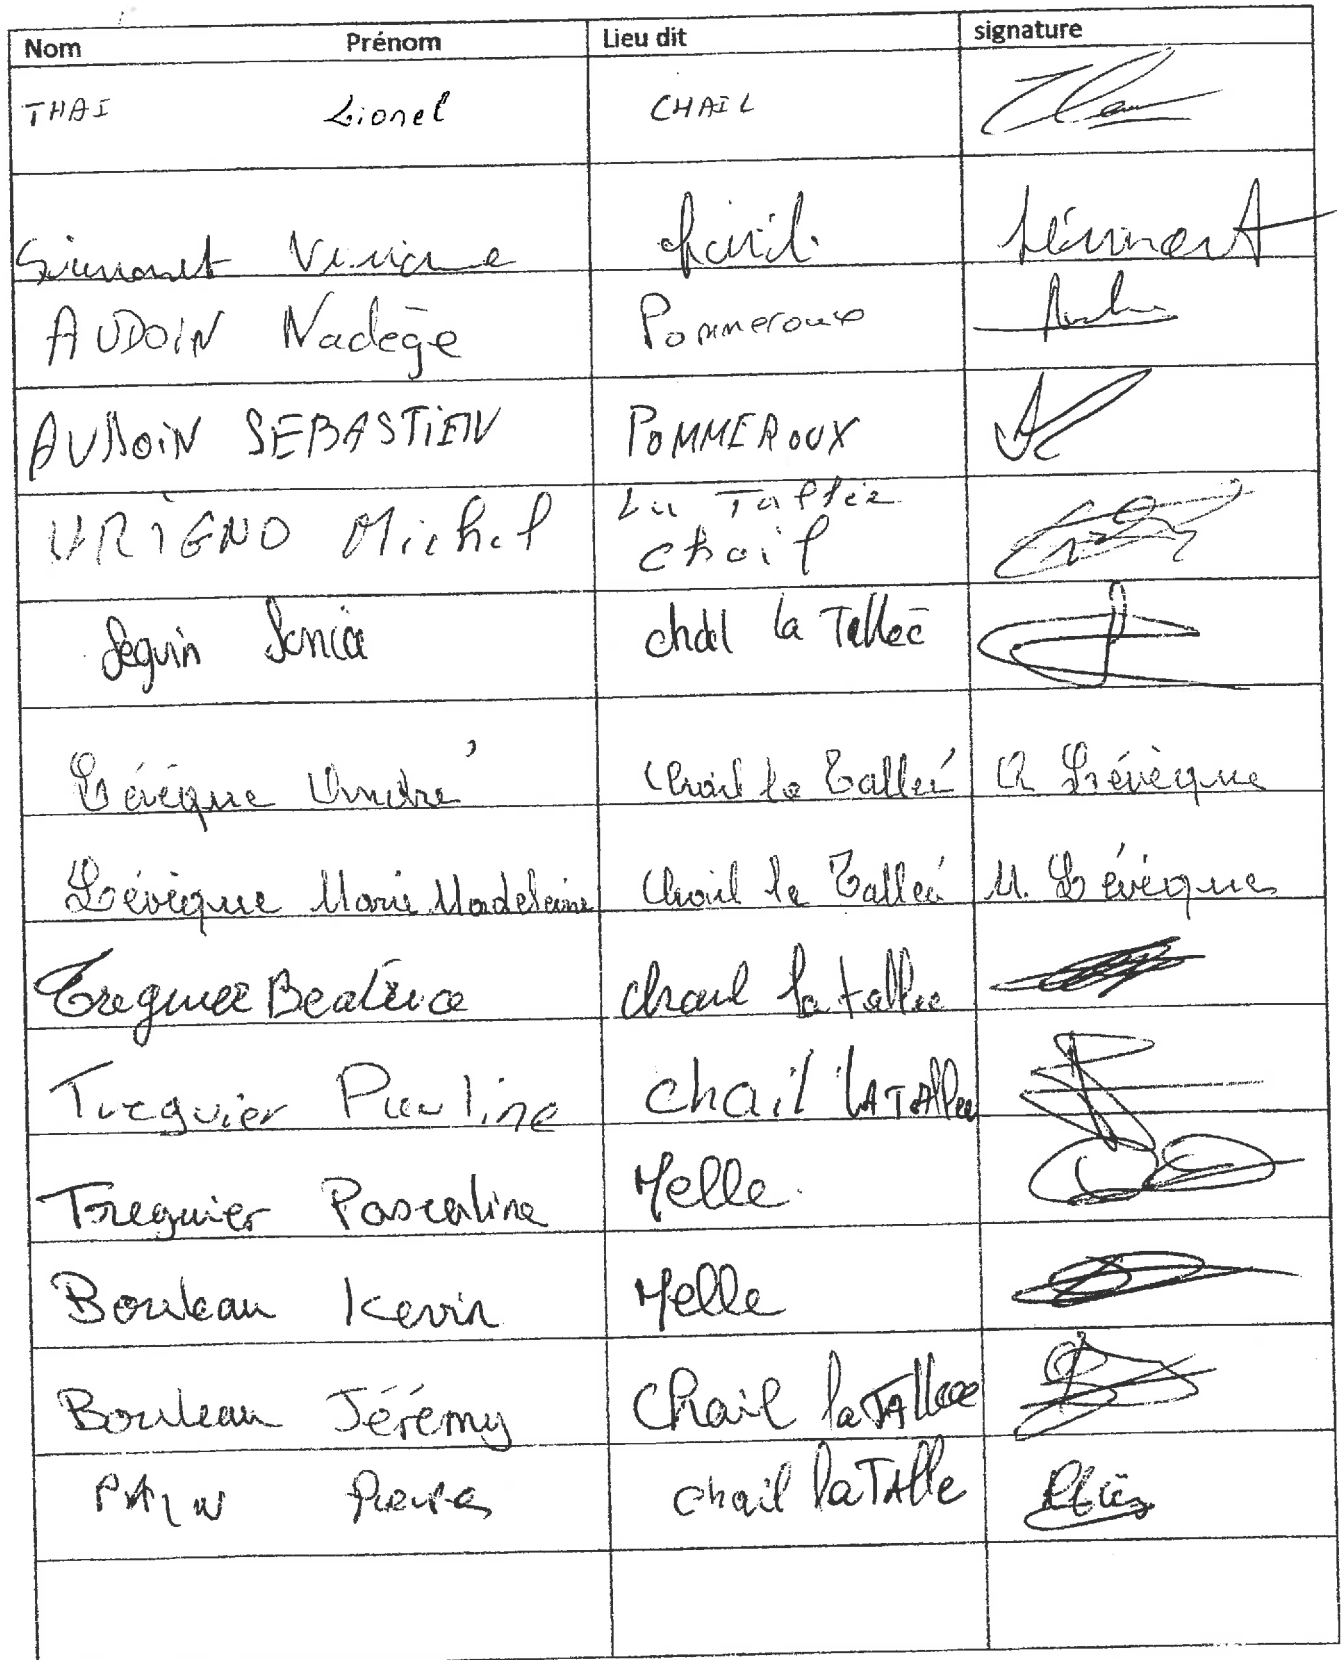 Nom Prénom Lieu dit signature
THAI Lionel CHAIL
Simonet Viviane Chail
AUDOIN Nadège Pommeroux
AUDOIN SEBASTIEN POMMEROUX
URIGNO Michel La Tallée
Chail
Seguin Sonia chail la Tallée
Lévèque André Chail la Tallée A Lévèque
Lévèque Marie Madeleine Chail la Tallée M. Lévèque
Treguier Beatrice chail la tallee
Treguier Pauline chail LA TAllee
Treguier Pascaline Melle
Bouleau Kevin Melle
Bouleau Jérémy Chail la TAllee
PAIN chail la TAlle